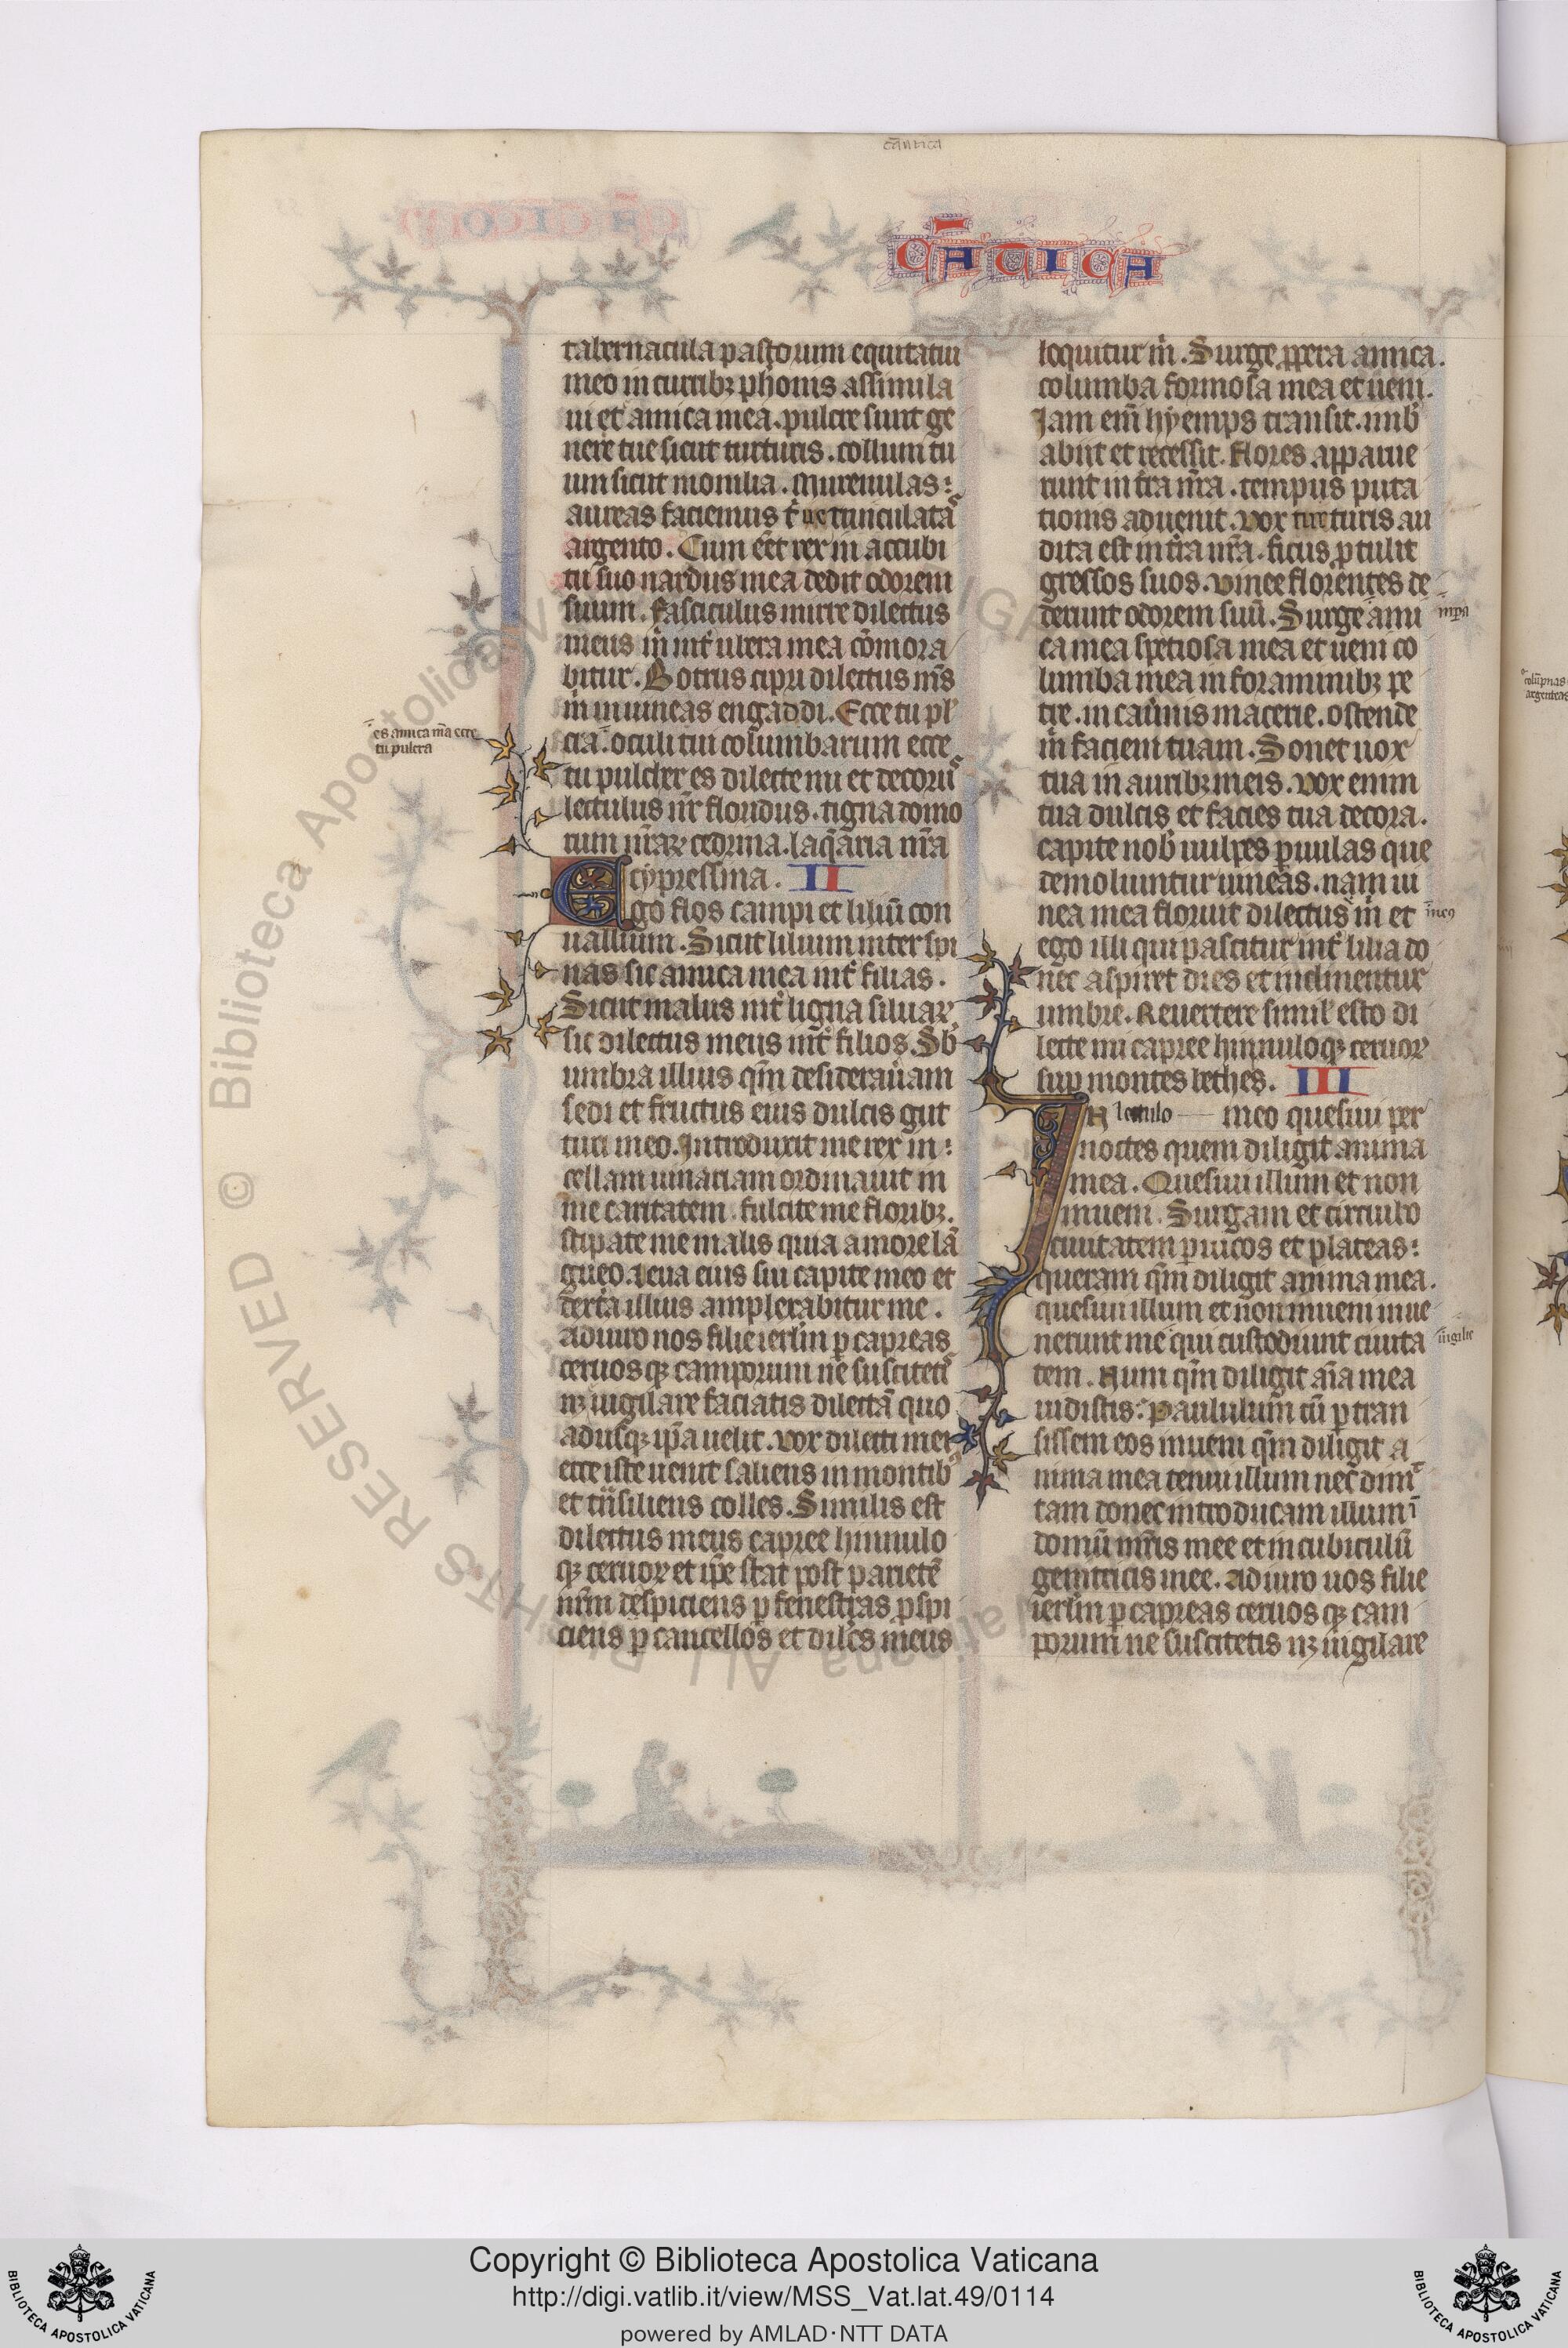 cantica
CĀTICA
tabernacula pastorum equitatui
meo in curribꝫ phōnis assimila
ui et amica mea. pulcre sunt ge
nere tue sicut turturis. collum tu
um sicut monilia. Murenulas
aureas faciemus t' uermiculatas
argento. Cum eēt rex in accubi
tu suo nardus mea dedit odorem
suum. fasciculus mirre dilectus
meus m̄ int' ubera mea cōmora
bitur. Botrus cipri dilectus m̄s
m̄ in uineas engaddi. Ecce tu pl'
cra. oculi tui columbarum ecce
es amica m̄a ecce
tu pulcra
tu pulcher es dilecte mi et decorus
lectulus nr̄ floridus. tigna domo
rum nr̄aꝝ cedrina. laq̄aria nr̄a
cypressina. II
Ego flos campi et liliū con
uallium. Sicut lilium inter spi
nas sic amica mea int' filias.
Sicut malus int' ligna siluaꝝ
sic dilectus meus int' filios. Sb
umbra illius qm̄ desideraueram
sedi et fructus eius dulcis gut
turi meo. Introduxit me rex in
cellam uinariam ordinauit in
me caritatem. fulcite me floribꝫ.
stipate me malis quia amore lā
gueo. leua eius sub capite meo et
dext̄a illius amplexabitur me.
adiuro uos filie ierl̄m p capreas
ceruosqꝫ camporum ne suscitetis
nꝫ uigilare faciatis dilectā quo
adusqꝫ ip̄a uelit. vox dilecti mei
ecce iste uenit saliens in montibꝰ
et t̄nsiliens colles. Similis est
dilectus meus capree hinnulo
qꝫ ceruoꝝ et ip̄e stat post parietē
nr̄m despiciens p fenestras pspi
ciens p cancellos et dilc̄s meus
loquitur m̄. Surge ppera amica.
columba formosa mea et ueni.
Iam em̄ hyemps transit. imbꝰ
abiit et recessit. flores apparue
runt in t̄ra nr̄a. tempus puta
tionis aduenit. vox turturis au
dita est in t̄ra nr̄a. ficus ptulit
grossos suos. vinee florentes de
derunt odorem suū. Surge ami
ca mea spetiosa mea et ueni co
lumba mea in foraminibꝫ pe
tre. in cau'nis macerie. ostende
m̄ faciem tuam. Sonet uox
tua in auribꝫ meis. vox enim
tua dulcis et facies tua decora.
capite nob' uulpes puulas que
demoliuntur uineas. nam ui
nea mea floruit dilectus m̄ et
meꝰ
ego illi qui pascitur int' lilia do
nec aspiret dies et inclinentur
umbre. Reuertere simil' esto di
lecte mi capree hinnuloqꝫ ceruoꝝ
sup montes bethes. III
IN lectulo meo quesiui per
noctes quem diligit anima
mea. Quesiui illum et non
inueni. Surgam et circuibo
ciuitatem p uicos et plateas
queram qm̄ diligit anima mea.
quesiui illum et non inueni inue
nerunt me qui custodiunt ciuita
uigiles
tem. Num qm̄ diligit aīa mea
uidistis. Paululum cū p tran
sissem eos inueni qm̄ diligit a
nima mea tenui illum nec dimit
tam donec introducam illum ī
domū mr̄is mee et in cubiculū
genitricis mee. Adiuro uos filie
ierl̄m p capreas ceruos qꝫ cam
porum ne suscitetis nꝫ uigilare
colūpnas
argenteas
© Biblioteca Apostolica Vaticana ALL RIGHTS RESERVED
Copyright © Biblioteca Apostolica Vaticana
http://digi.vatlib.it/view/MSS_Vat.lat.49/0114
powered by AMLAD·NTT DATA
BIBLIOTECA APOSTOLICA VATICANA
BIBLIOTECA APOSTOLICA VATICANA